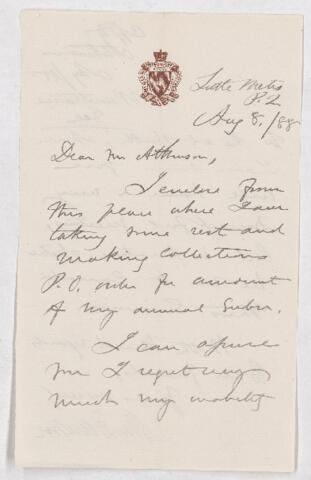 Little Metis
P. Q
Aug 8. /88
Dear Mr Atkinson,
I enclose from
this place where I am
taking some rest and
making collections
P. O. order for amount
of my annual Subn.
I can assure
you I regret very
much my inability